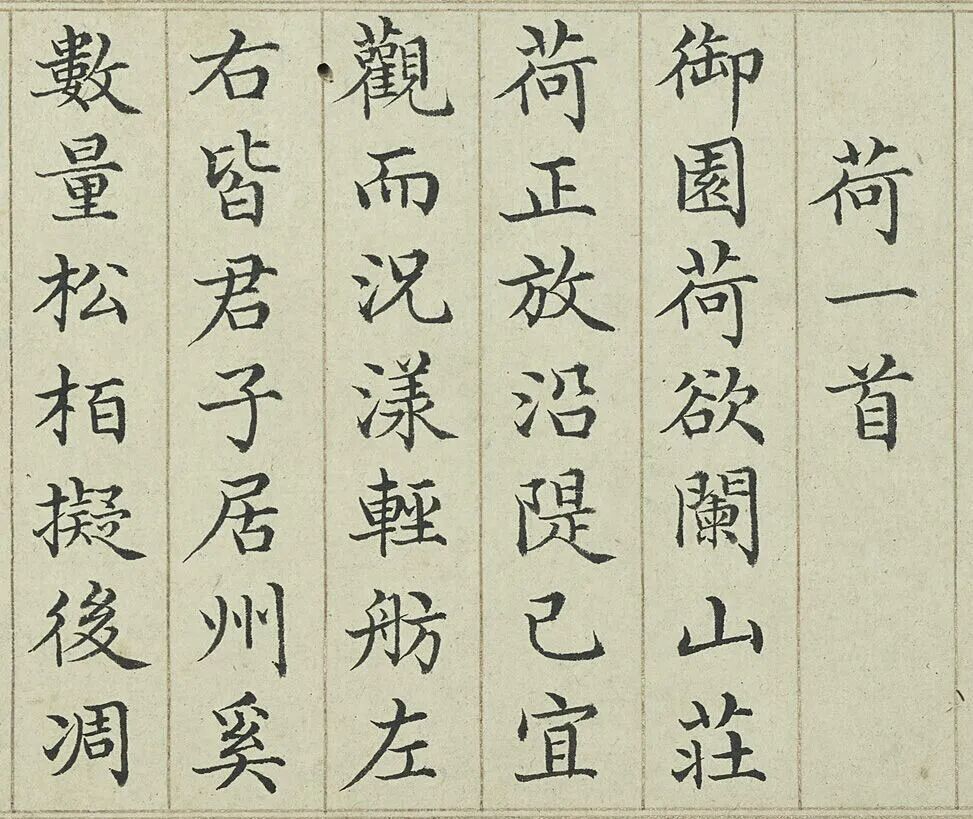 荷一首
御園荷欲闌山莊
荷正放沿隄已宜
觀而況漾輕舫左
右皆君子居州奚
數量松栢擬後凋